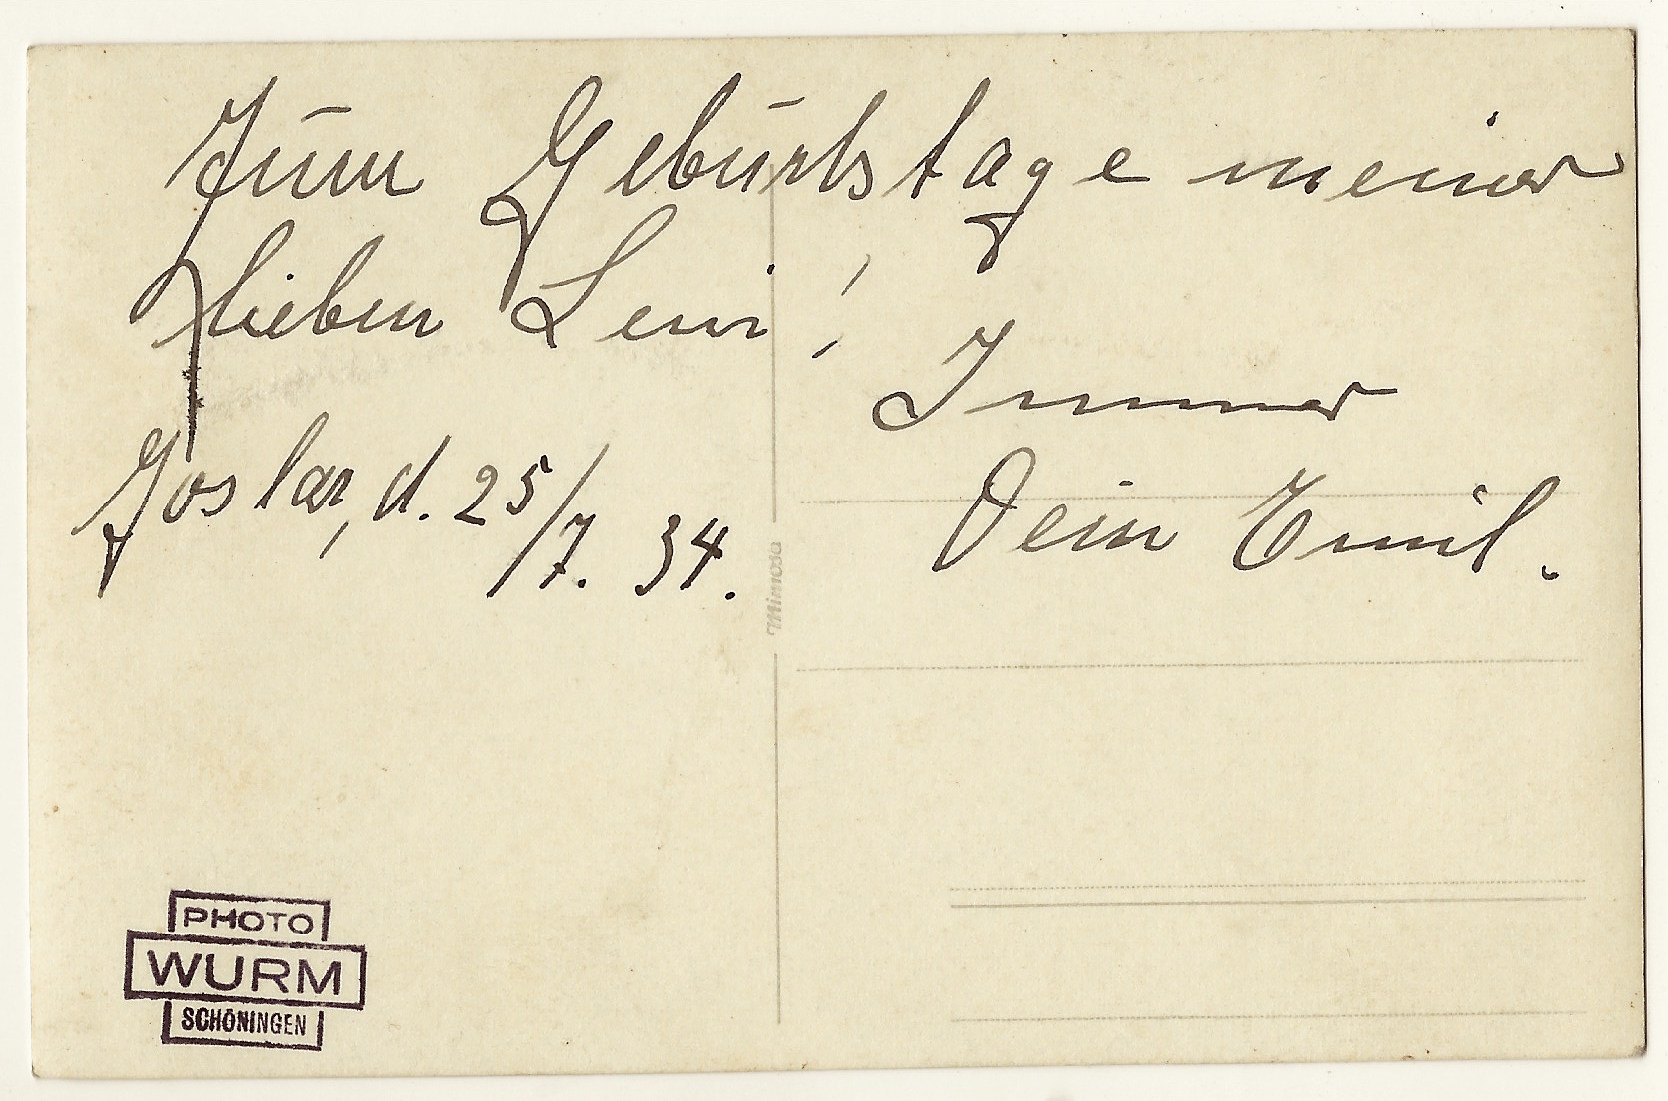 Zum Geburtstage meiner
lieben Leni!
Immer
Dein Emil.
Goslar, d. 25/7. 34.
Mimosa
PHOTO
WURM
SCHÖNINGEN